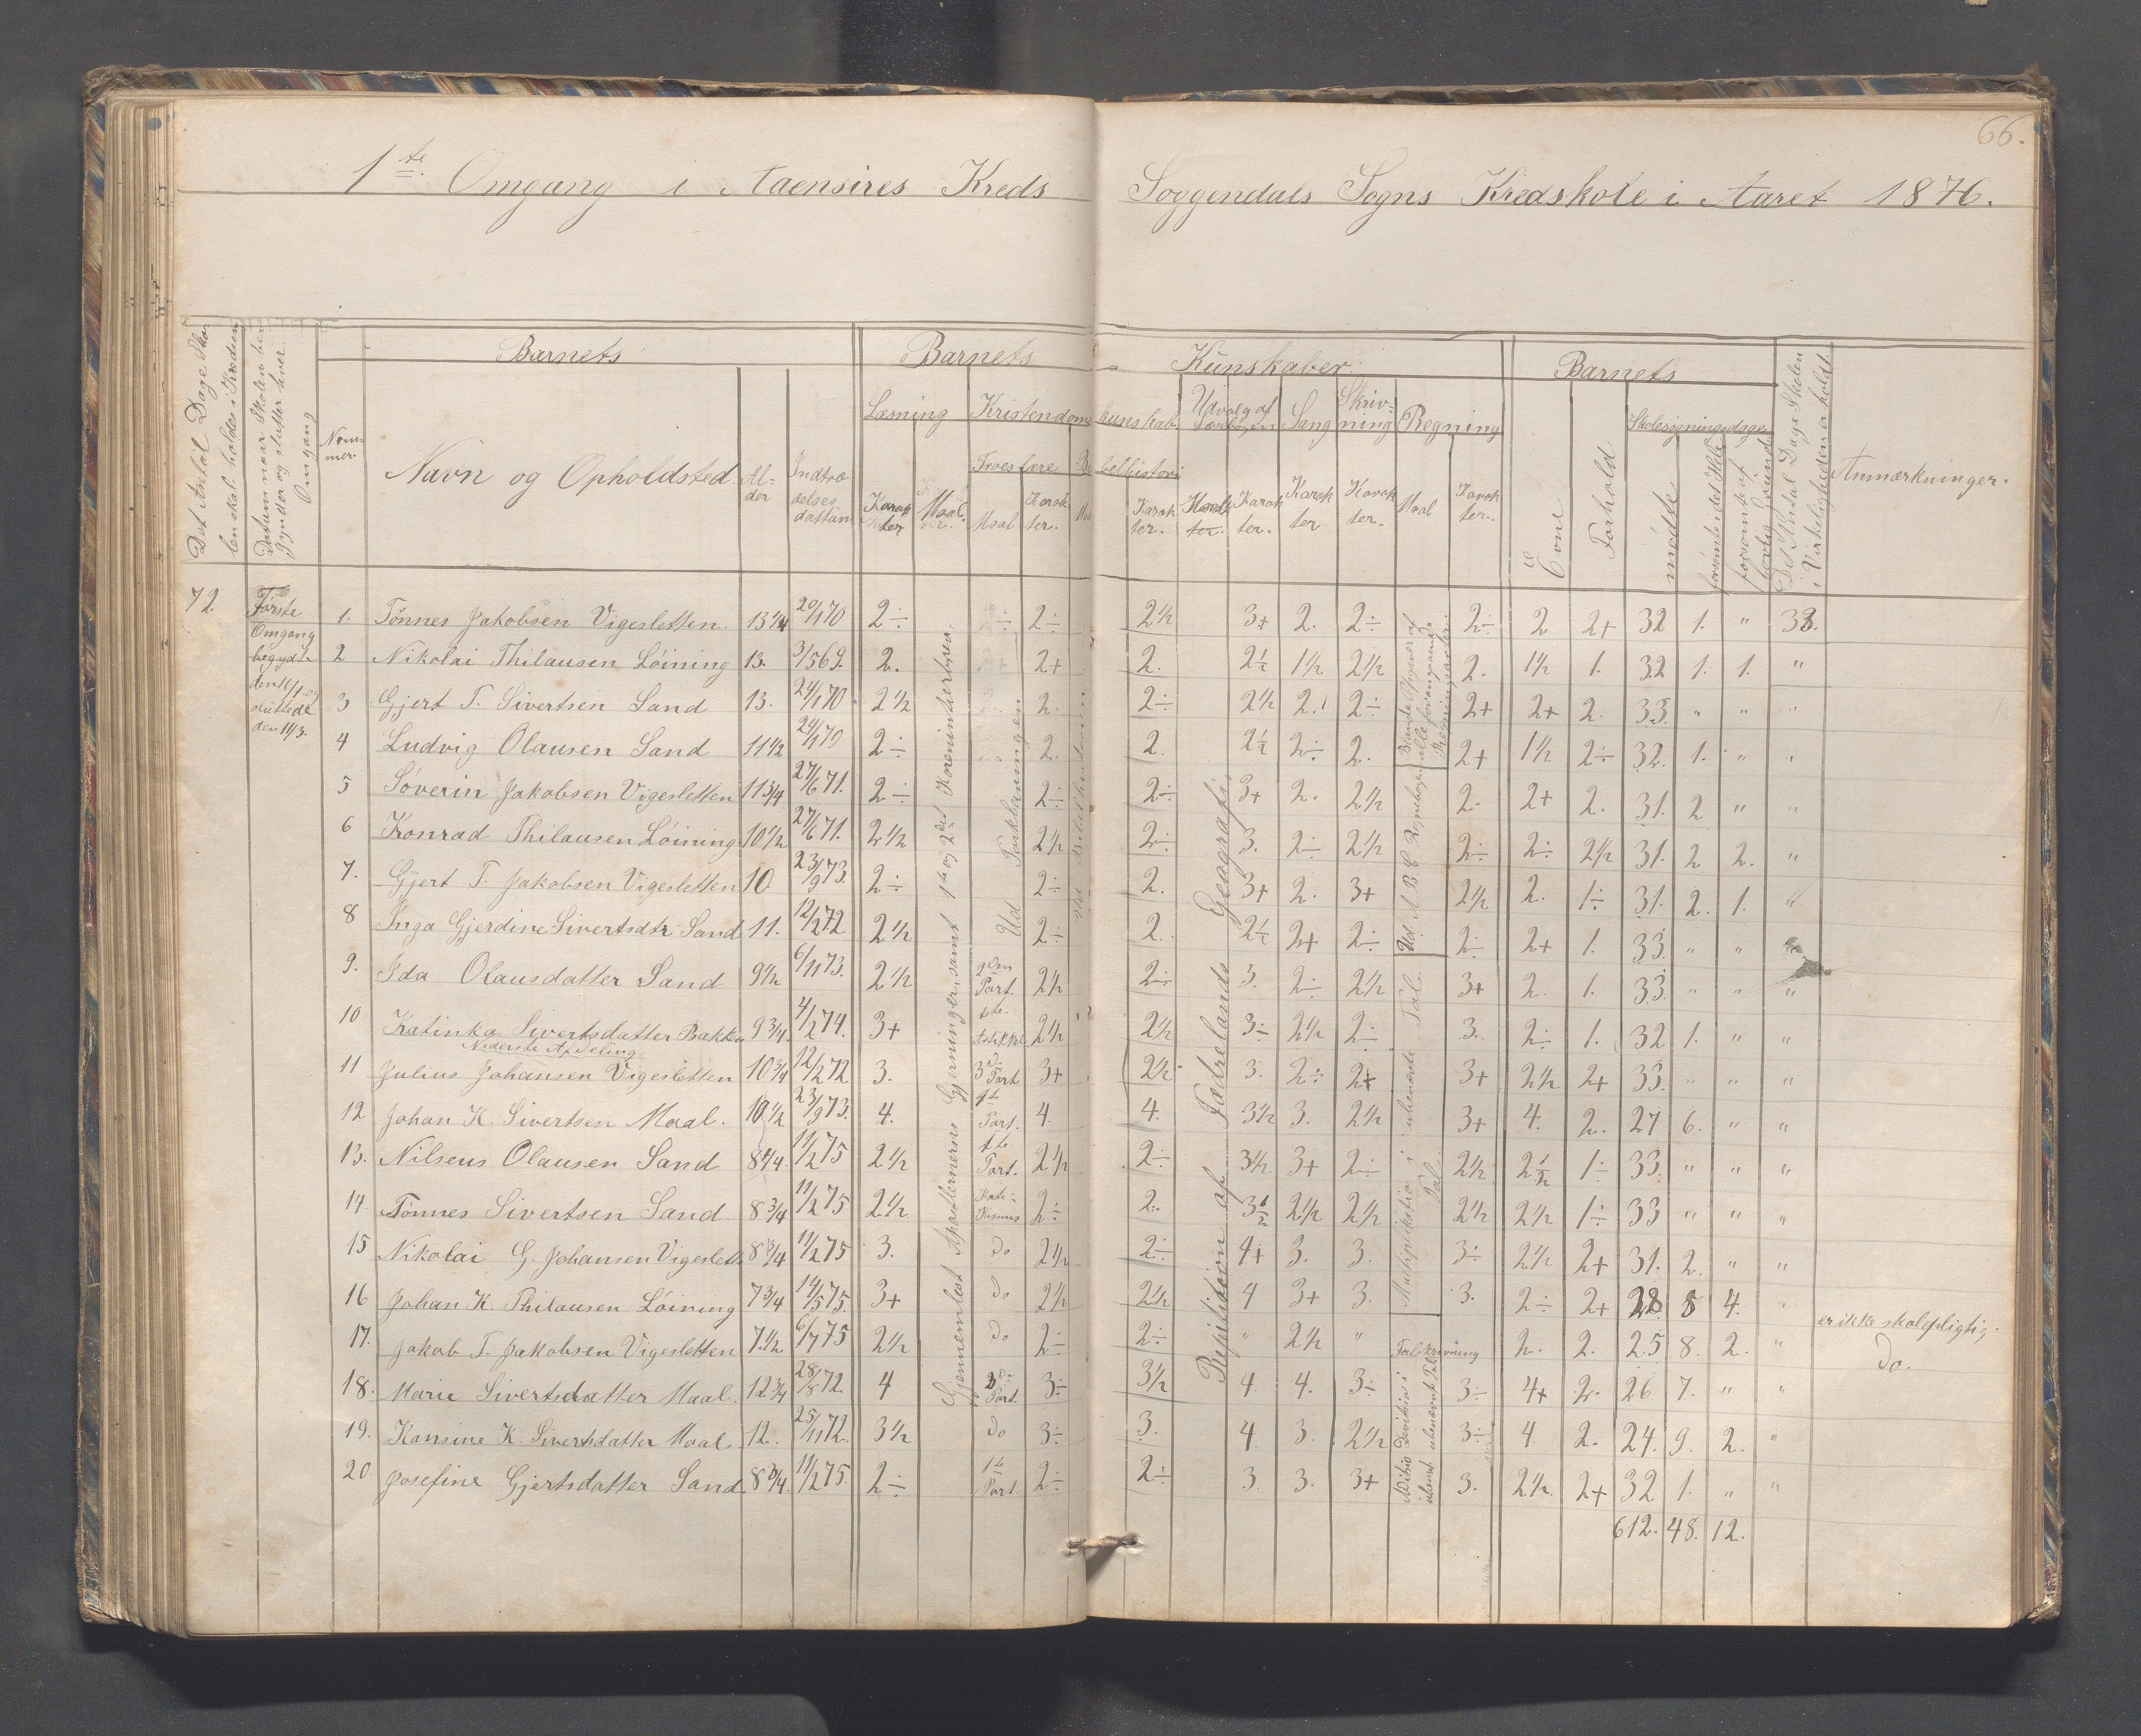 66.
1te Omgang i Aaensires Kreds Soggendals Sogns Kredskole i Aaret 1876.
Det Antal Dage Skolen skal holdes i Kredsen
Datum naar Skolen begynder og slutter hver Omgang
Nommer
Barnets
Navn og Opholdsted.
Alder
Indtrædelsesdatum
Barnets Kunskaber.
Læsning
Karakter
Maal.
Kristendomskunskab.
Troeslære
Maal
Karakter.
Bibelhistori
Karakter.
Udvalg af Læsebogen
Karakter.
Sang
Karakter
Skrivning
Karakter.
Regning
Maal
Karakter.
Barnets
Evne
Forhold
Skolesøgningsdage
mødte
forsømte det Hele
forsømt af lovlig Grunde
Det Antal Dage Skolen i Virkeligheden er holdt.
Anmærkninger.
72
Første Omgang begyndte den 16/1 og sluttede den 11/3.
1. Tønnes Jakobsen Vigesletten. 13 1/4 20/1 70 2÷ 2÷ 2 1/2 3+ 2. 2÷ 2÷ 2 2+ 32 1. " 33.
2 Nikolai Thilausen Løining 13. 3/5 69. 2. 2+ 2. 2 1/2 1 1/2 2 1/2 2. 1 1/2 1. 32 1. 1. "
3 Gjert T. Sivertsen Sand 13. 24/1 70 2 1/2 2. 2÷ 2 1/2 2. 2÷ 2+ 2+ 2. 33. " " "
4 Ludvig Olausen Sand 11 1/2 24/1 70 2÷ 2. 2. 2 1/2 2÷ 2. 2+ 1 1/2 2÷ 32. 1. " "
5 Søverin Jakobsen Vigesletten 11 3/4 27/6 71. 2÷ 2÷ 2÷ 3+ 2. 2 1/2 2. 2+ 2. 31. 2 " "
6 Konrad Thilausen Løining 10 1/2 27/6 71. 2 1/2 2 1/2 2÷ 3. 2÷ 2 1/2 2÷ 2÷ 2 1/2 31. 2 2. "
7. Gjert T. Jakobsen Vigesletten 10 23/9 73. 2÷ 2÷ 2. 3+ 2. 3+ 2 1/2 2. 1÷ 31. 2. 1. "
8 Inga Gjerdine Sivertsdtr Sand 11. 12/2 72 2 1/2 2÷ 2. 2 1/2 2+ 2÷ 2÷ 2+ 1. 33. " " "
9. Ida Olausdatter Sand 9 1/2 6/11 73. 2 1/2 2den Part. 2 1/2 2÷ 3. 2÷ 2 1/2 3+ 2. 1. 33. " " "
10 Katinka Sivertsdatter Bakken 9 3/4. 4/2 74. 3+ 1te Artikkel 2 1/2 2 1/2 3÷ 2 1/2 2÷ 3. 2÷ 1. 32 1. " "
Nederste Afdeling
11 Julius Johansen Vigesletten 10 3/4 12/2 72 3. 3d Part 3+ 2 1/2 3. 2÷ 2+ 3+ 2 1/2 2+ 33. " " "
12. Johan K. Sivertsen Maal. 10 1/2 23/9 73. 4. 1te Part. 4. 4. 3 1/2 3. 2 1/2 3+ 4. 2. 27 6. " "
13. Nilseus Olausen Sand 8 1/4. 11/2 75 2 1/2 1te Part. 2 1/2 2÷ 3 1/2 3+ 2÷ 2 1/2 2 1/2 1÷ 33. " " "
14. Tønnes Sivertsen Sand 8 3/4 11/2 75 2 1/2 Katekismus 2÷ 2. 3 1/2 2 1/2 2 1/2 2 1/2 2 1/2 1÷ 33 " " "
15 Nikolai G. Johansen Vigeslett 8 3/4 11/2 75 3. do 2 1/2 2÷ 4+ 3. 3. 3÷ 2 1/2 2+ 31. 2. " "
16 Johan K. Thilausen Løining 7 3/4 14/5 75. 3+ do 2 1/2 2 1/2 4 3+ 3. 3. 2÷ 2+ 28 5 4. " er ikke skolepligtig.
17. Jakob T. Jakobsen Vigesletten 7 1/2 6/7 75 2 1/2 do 2÷ 2÷ " 2 1/2 " Talskrivning 2. 2. 25 8. 2. " do.
18. Marie Sivertsdatter Maal. 12 3/4 28/8 72. 4 3d Part. 3÷ 3 1/2 4. 4. 3÷ 3÷ 4+ 2. 26 7. " "
19. Kansine K. Sivertsdatter Maal. 12. 25/11 72. 3 1/2 do 3÷ 3. 4. 3. 2 1/2 3÷ 4. 2. 24. 9. 2. "
20 Josefine Gjertsdatter Sand 8 3/4. 11/2 75. 2÷ 1te Part. 2÷ 2÷ 3. 3. 3+ 3. 2 1/2 2+ 32 1. " "
612. 48. 12.
Gjennemlæst Apostlernes Gjerninger, samt 1te og 2det Korenintherbrev.
Ud Forklaringen
Ud Bibelhistorien
Repitition af Fædrelands Geografi,
Blandede Opgaver af alle foregaaende Regningsarter.
Ud A B C Regnebogen
Multiplikation i ubenævnte Tal.
Addition Devition i ubenævnte Tal